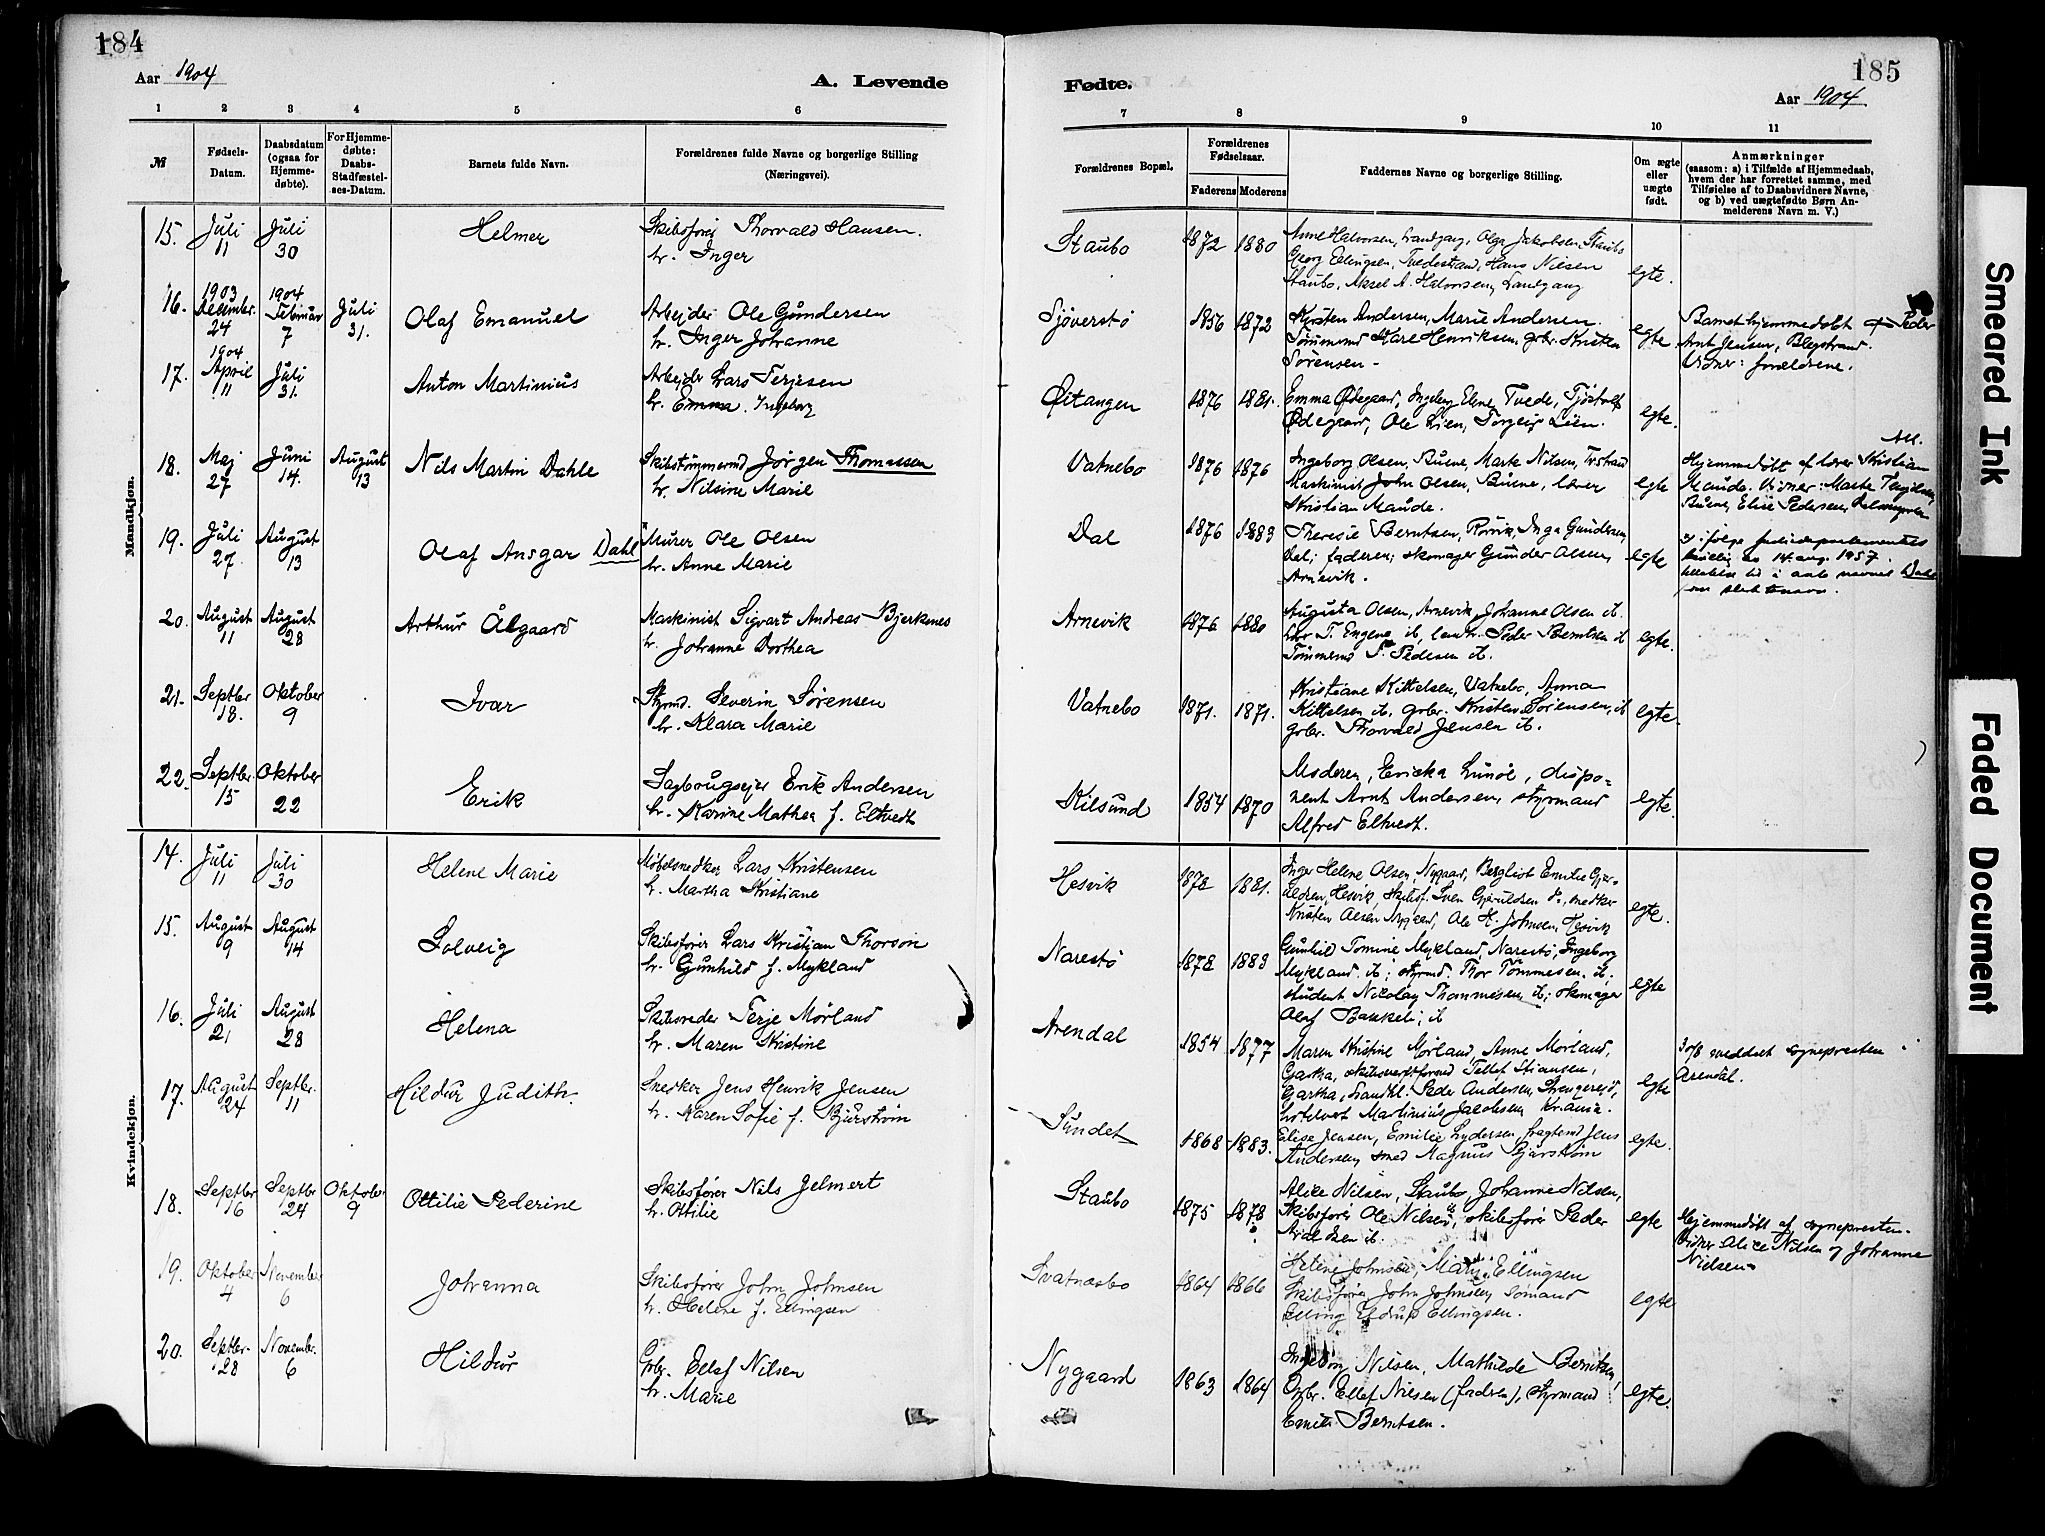 184
Aar 1904
A. Levende
1 2 3 4 5 6
№ Fødsels-Datum. Daabsdatum (ogsaa for Hjemme-døbte). For Hjemme-døbte: Daabs-Stadfæstel-ses-Datum. Barnets fulde Navn. Forældrenes fulde Navne og borgerlige Stilling (Næringsvei).
Mandkjøn.
15. Juli 11 Juli 30 Helmer Skibsfører Thorvald Hansen.
h. Inger
16. 1903 December 24 1904 Februar 7 Juli 31. Olaf Emanuel Arbejder Ole Gundersen
h. Inger Johanne
17. 1904 April 11 Juli 31. Anton Martinius Arbejder Lars Terjesen
h. Emma. Ingeborg
18. Maj 27 Juni 14. August 13 Nils Martin Dahle Skibstømmermd Jørgen Thomassen
h. Nilsine Marie
19. Juli 27. August 13 Olaf Ansgar Dahl Murer Ole Olsen
h. Anne Marie
20. August 11 August 28 Arthur Ålgaard Maskinist Sigvart Andreas Bjerkenes
h. Johanne Dorthea
21. Septbr 18. Oktober 9 Ivar Styrmd. Severin Sørensen
h. Klara Marie
22. Septbr. 15 Oktober 22 Erik Sagbrugsejer Erik Andersen
h. Karine Mathea f. Eltvedt
Kvindekjøn.
14. Juli 11 Juli 30 Helene Marie Møbelsnedker Lars Kristensen
h. Martha Kristiane
15. August 9 August 14 Solveig Skibsfører Lars Kristjan Thorsøn
h. Gunhild f. Mykland
16. Juli 21 August 28 Helena Skibsreder Terje Mørland
h. Maren Kristine
17. August 24 Septbr. 11 Hildur Judith. Snedker Jens Henrik Jensen
h. Karen Sofie f. Bjurstrøm
18. Septbr 16 Septbr 24 Oktober 9 Ottilie Pederine Skibsfører Nils Jelmert
h. Ottilie
19. Oktober 4 November 6 Johanna Skibsfører John Johnsen
h. Helene f. Ellingsen
20. Septbr. 28 Novembr. 6 Hildur Gbr. Ellef Nilsen
h. Marie
185
Fødte.
Aar 1904
7 8 9 10 11
Forældrenes Bopæl. Forældrenes Fødselsaar. Faderens Moderens Faddernes Navne og borgerlige Stilling. Om ægte eller uægte født. Anmærkninger
(saasom: a) i Tilfælde af Hjemmedaab,
hvem der har forrettet samme, med
Tilføielse af to Daabsvidners Navne,
og b) ved uægtefødte Børn An-
melderens Navn m. V.)
Staubo 1872 1880 Anne Halvorsen, Landgang, Olga Jakobsen, Staubo
Georg Ellingsen, Tvedestrand, Hans Nilsen
Staubo, Aksel A. Halvorsen, Landgang egte.
Sjøverstø 1856 1872 Kirsten Andersen, Marie Andersen.
Tømmermd Kare Henriksen, gbr. Kristen
Sørensen - egte Barnet hjemmedøbt af Peder
Arnt Jensen, Blegstrand.
Vidner: forældrene.
Øitangen 1876 1881. Emma Ødegaard, Ingeborg Elene Tvede, Tjøstolf
Ødegaard, Ole Lien, Torgeir Lien. egte.
Vatnebo 1876 1876 Ingeborg Olsen, Buene, Marte Nilsen,
Maskinist John Olsen, Buene, lærer
Kristian Maude. egte Hjemmedøbt af lærer Kristian
Maude. Vidner: Marte
Buene, Elise Pedersen,
Dal 1876 1883 Theresie Berntsen, Rørvik, Inga Gundersen
Dal; faderen; skomager Gunder Olsen,
Arnevik. egte i følge
14. aug. 1957
navnet Dahl
Arnevik 1876 1880 Augusta Olsen, Arnevik, Johanne Olsen ib.
T. Engene ib, Peder Berntsen ib
Tømmermd P. Pedersen ib. egte.
Vatnebo 1871. 1871. Kristiane Kittelsen, Vatnebo, Anna
Kittelsen ib, gbr. Kristen Sørensen, ib
gbr. Thorvald Jensen ib. egte.
Kilsund 1854 1870 Moderen, Ericka Lunde, dispo-
nent Arnt Andersen, styrmand
Alfred Eltvedt. egte.
Hesvik 1878 1881. Inger Helene Olsen, Nygaard, Bergliot Emilie Gjer-
uldsen, Hesvik, Skibsf. Sven Gjeruldsen, snedker
Kristen Olsen Nygaard, Ole H. Johnsen, Hesvik egte.
Narestø 1878 1883 Gunhild Tomine Mykland, Narestø, Ingeborg
Mykland. ib; styrmd. Thor Tommesen. ib.
student Nicolay Thommesen, ib; skomager
Olaf Bakkeli; ib egte
Arendal 1854 1877 Maren Kristine Mørland, Anne Mørland,
Gartha, skibstømmermd Tellef Stiansen,
Gartha, Landhl. Peder Andersen, Strengereid,
Martinius Jacobsen, Krania. egte 30/8 meddelt sognepresten i
Arendal.
Sundet 1868 1883. Elise Jensen, Emilie Lydersen, Jens
Andersen, smed Magnus Bjurstrøm egte.
Staubo 1875 1878 Alice Nilsen, Staubo, Johanne Nilsen,
Skibsfører Ole Nilsen, skibsfører Peder
ib. egte Hjemmedøbt af sognepresten.
Vidner Alice Nilsen og Johanne
Nielsen
Svatnesbo 1864 1866 Helene Johnsen, Mary Ellingsen
Skibsfører John Johnsen, sømand
Elling Eldrup Ellingsen. egte
Nygaard 1863 1864 Ingeborg Nilsen, Mathilde Berntsen,
Gbr. Ellef Nilsen (faderen), styrmand
Emil Berntsen. egte.
Smeared Ink
Faded Document